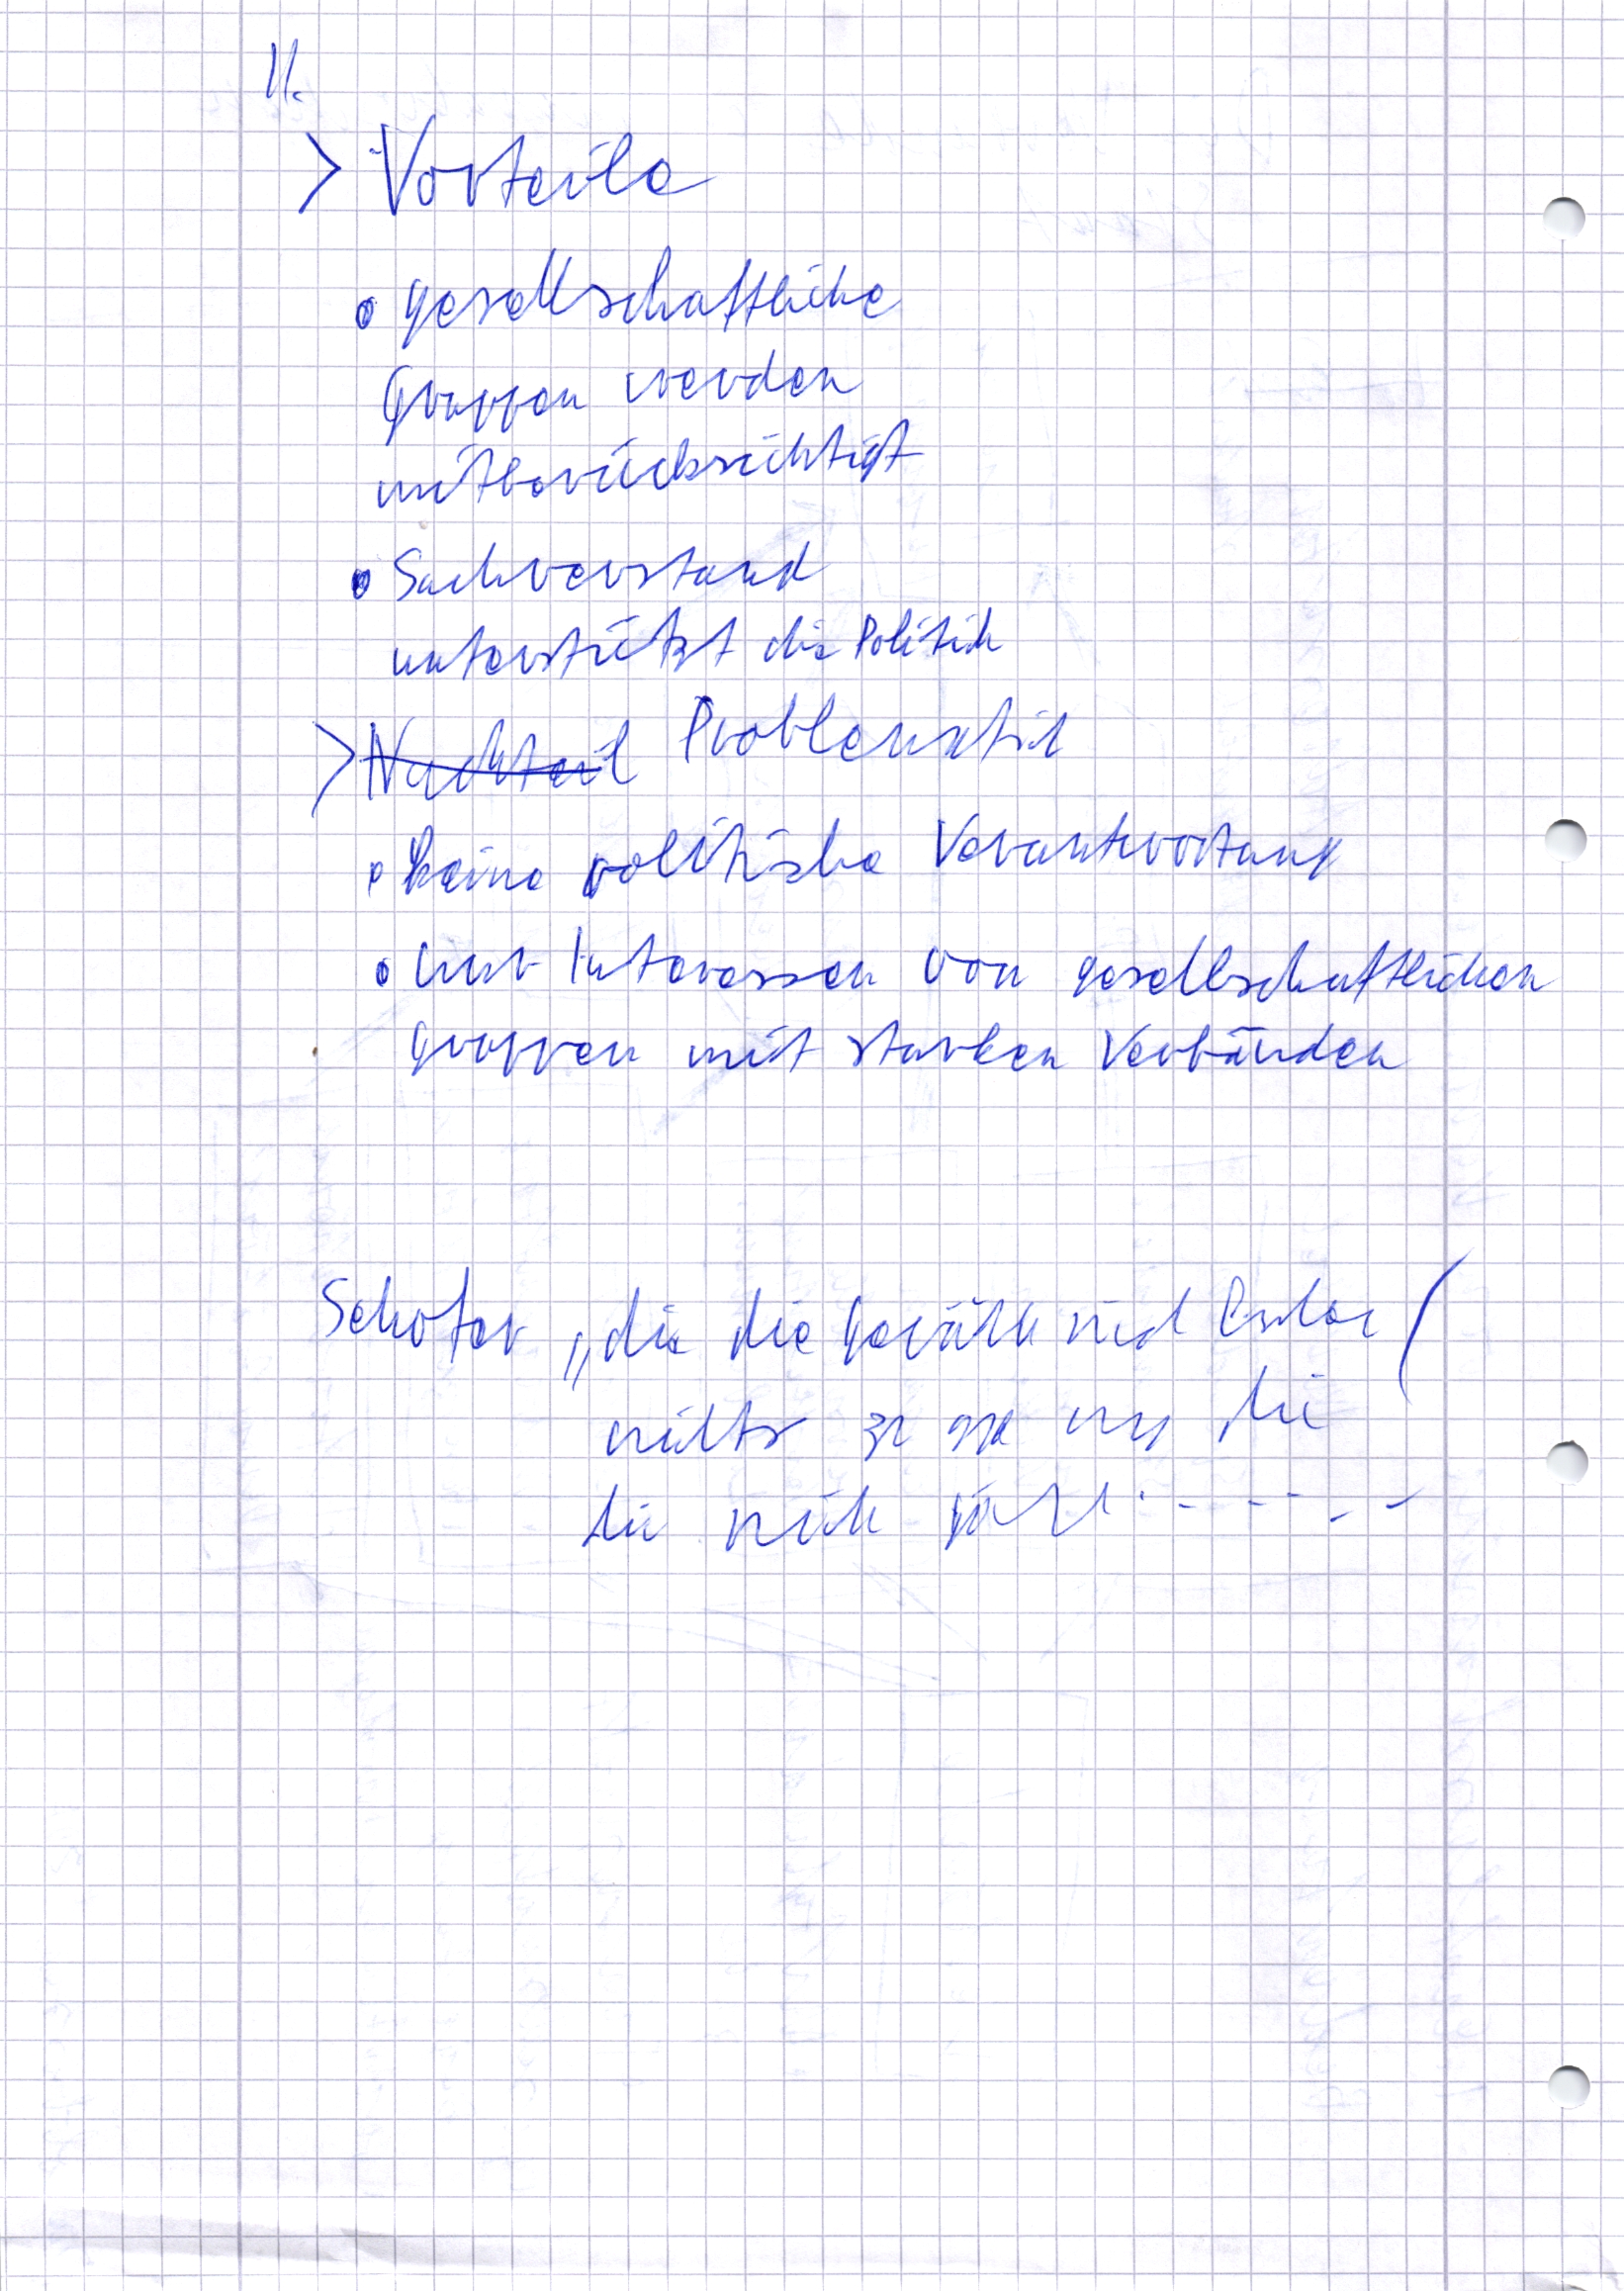 11.
> Vorteile
• gesellschaftliche
Gruppen werden
mitberücksichtigt
• Sachverstand
unterstützt die Politik
> Nachteil Problematik
• keine politische Verantwortung
• nur Interessen von gesellschaftlichen
Gruppen mit starken Verbänden
„die die
die
die